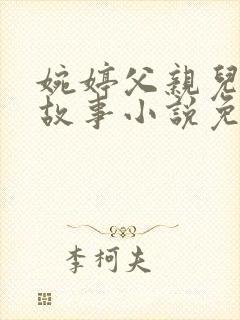 婉婷父親兒
故事小說免
李柯夫